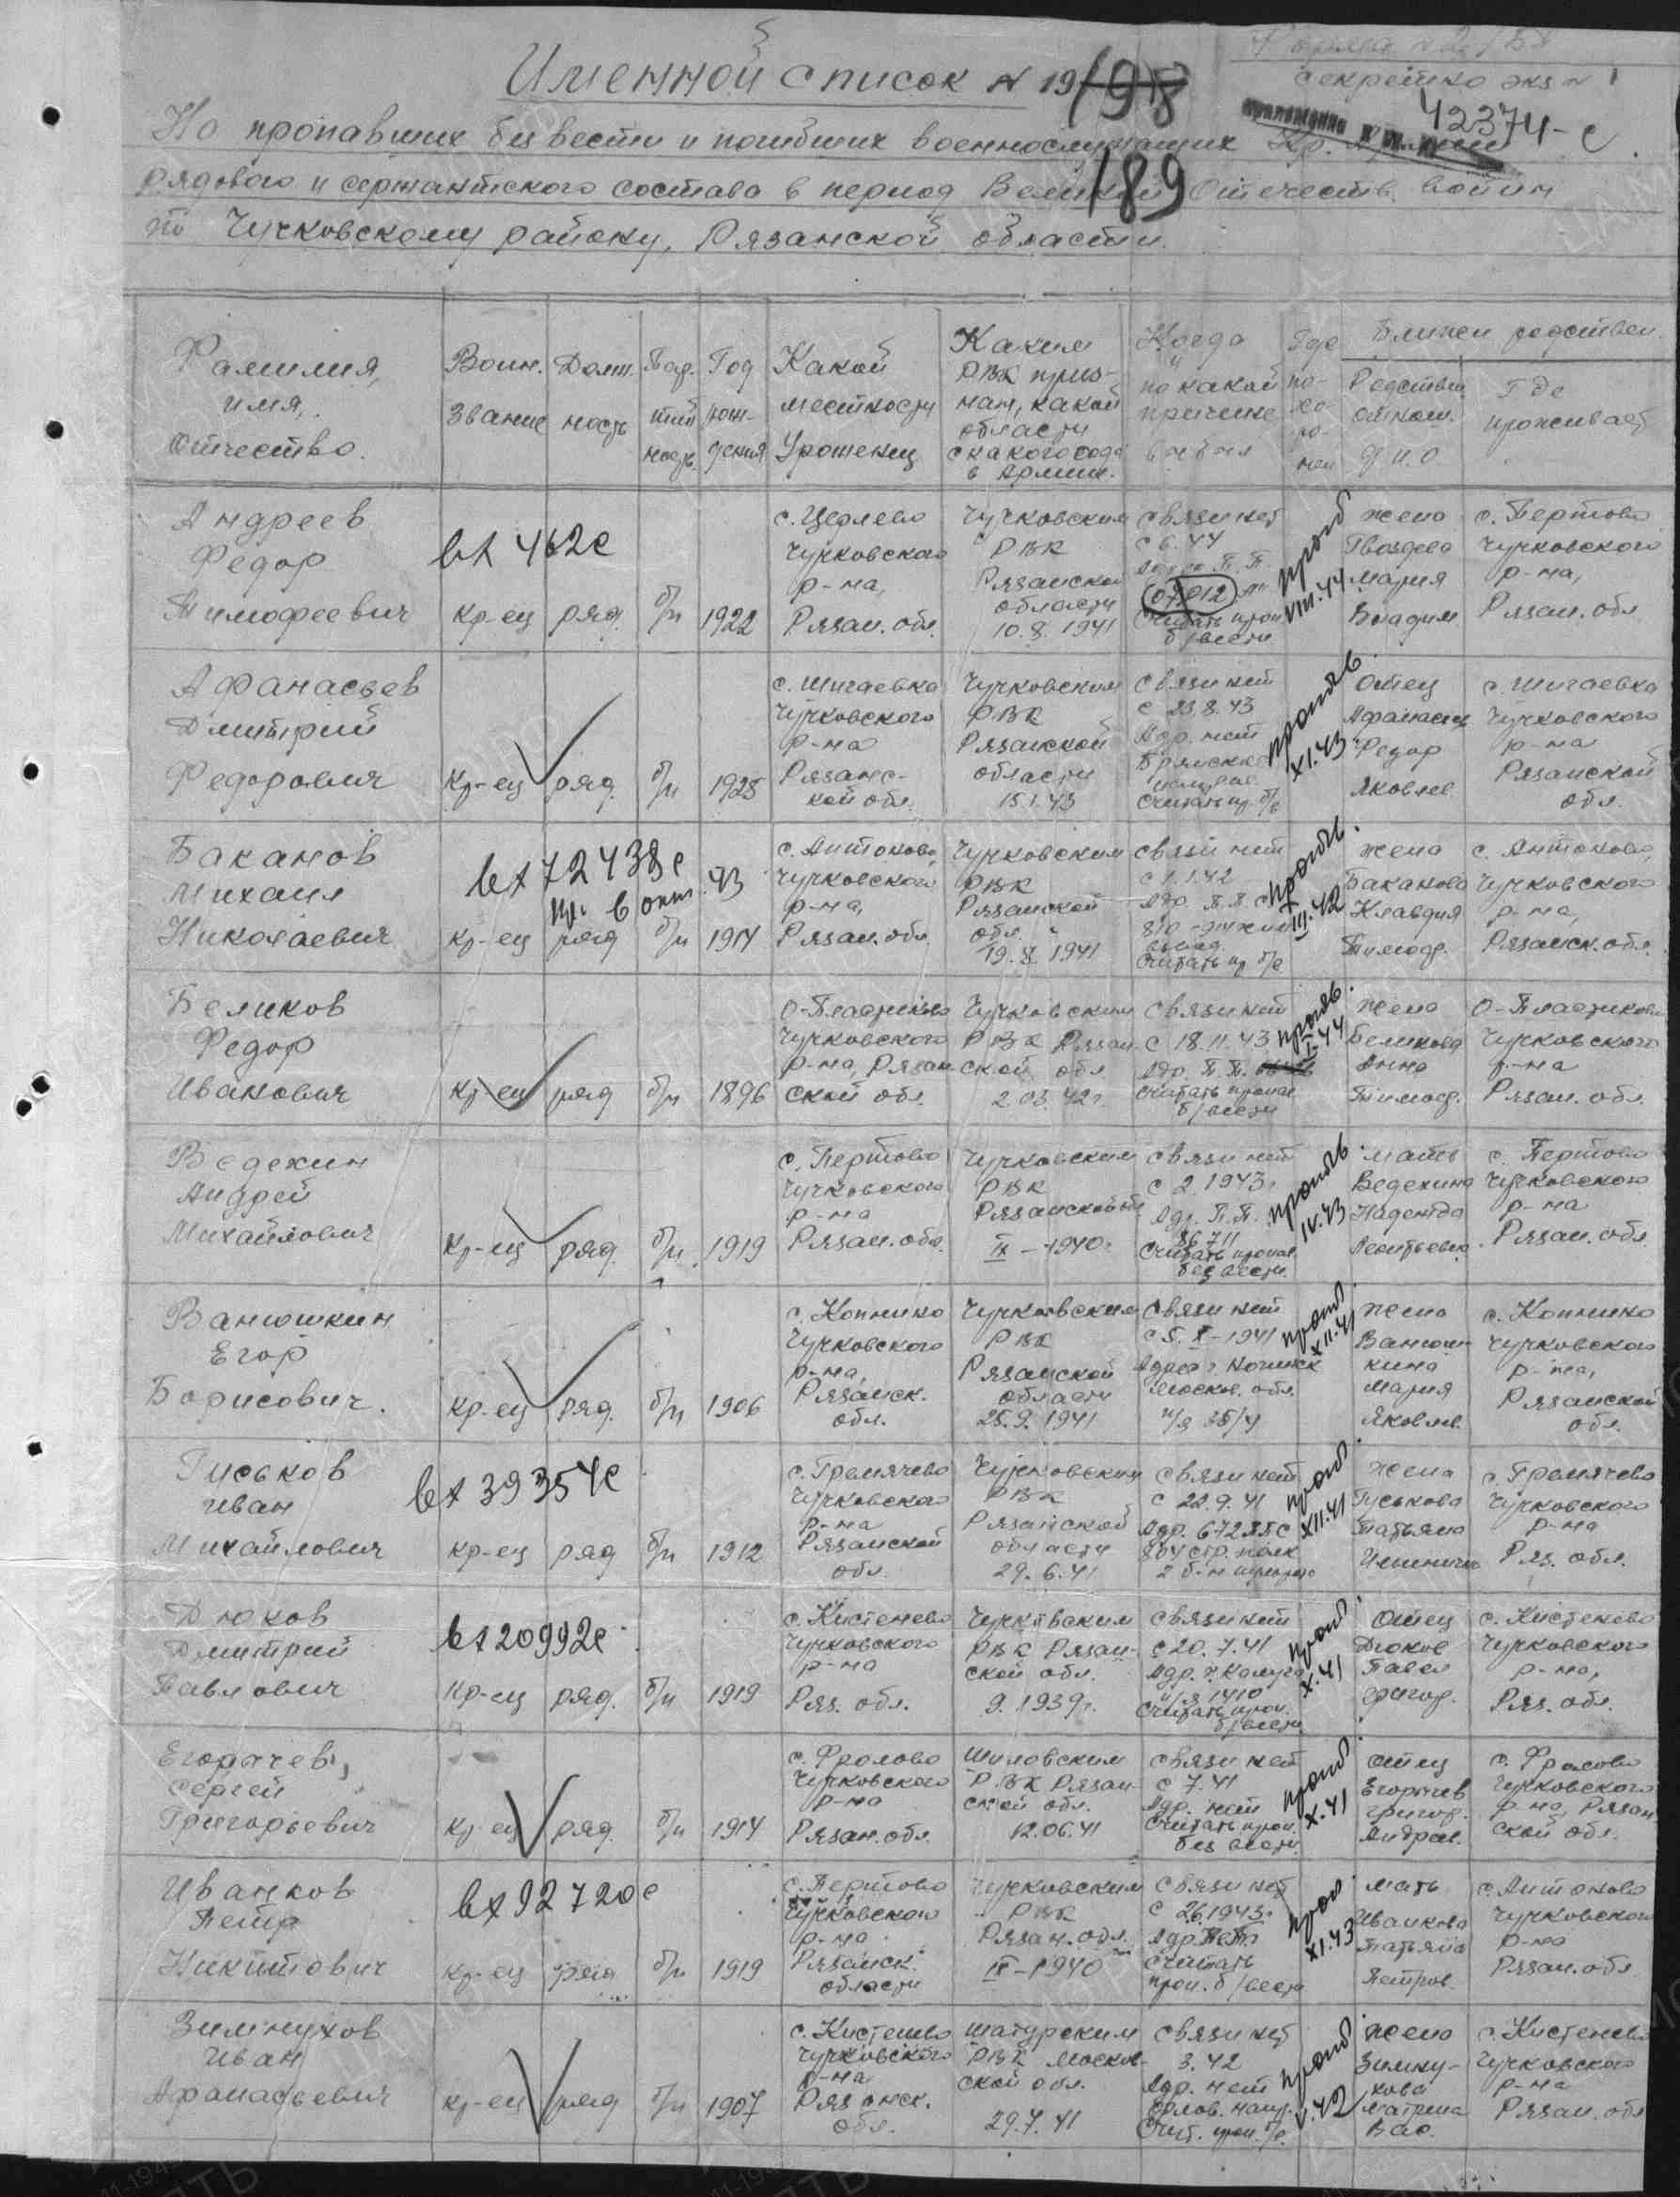 Именной список № 19
198
189
секретно экз № 1
42374-с
На пропавших без вести и погибших военнослужащих Кр. Армии
рядового и сержантского состава в период Великой Отечеств. войны
по Чучковскому району, Рязанской области.
Фамилия, имя, отчество.
Воин. звание
Долж. ность
Пар. тий ность
Год рож- дения
Какой местности Уроженец
Каким РВК приз- ван, какой области с какого года в Армии.
Когда и по какой причине выбыл
Где по- хо- ро- нен
Ближн родствен.
Родствен отнош. Ф.И.О.
Где проживает
Андреев Федор Тимофеевич
вх 462с
кр-ец ряд. б/п 1922
Чучковского р-на, Рязан. обл.
Чучковским РВК Рязанской области 10.8.1941
связи нет с 6.44
Считать проп б/вести
VIII.44
жена Мария
с. Пертово Чучковского р-на, Рязан. обл
Афанасьев Дмитрий Федорович
кр-ец ряд. б/п 1925
с. Шигаевка Чучковского р-на Рязанс- кой обл.
Чучковским РВК Рязанской области 15.1.43
связи нет с 23.8.43 Адр. нет
Считать пр. б/в
XI.43
отец Федор Яковлев
с. Шигаевка Чучковского р-на Рязанской обл.
Баканов Михаил Николаевич
вх 72438с
кр-ец ряд б/п 1914
Чучковского р-на, Рязан. обл.
Чучковским РВК Рязанской обл.
связи нет с 1.1.42
Считать пр б/в
III.42
жена Баканова Клавдия Тимоф.
с. Антоново, Чучковского р-на, Рязанск. обл.
Беликов Федор Иванович
кр-ец ряд б/п 1896
Чучковского р-на, Рязан ской обл.
Чучковским РВК Рязан- ской обл 2.03.42г.
связи нет с 18.11.43 Адр. П.П.
считать пропал б/вести
I.44
жена Беликова Анна Тимоф.
Чучковского р-на Рязан. обл.
Ведехин Андрей Михайлович
кр-ец ряд. б/п 1919
с. Пертово Чучковского р-на Рязан. обл.
Чучковским РВК Рязанской обл IX-1940г.
связи нет с 2.1943г. Адр. П.П. 36711
Считать пропал. без вести.
IV.43
мать Ведехина Надежда Леонтьевна
с. Пертово Чучковского р-на Рязан. обл.
Ванюшкин Егор Борисович.
кр-ец ряд. б/п 1906
с. Копнино Чучковского р-на, Рязанск. обл.
Чучковским РВК Рязанской области 25.9.1941
связи нет с 5.X-1941 Адрес г. Ногинск Москов. обл.
XII.41
жена Ванюш- кина Мария Яковлев.
с. Копнино Чучковского р-на, Рязанской обл.
Гуськов Иван Михайлович
вх 39354с
кр-ец ряд б/п 1912
с. Гремячево Чучковского р-на Рязанской обл.
Чучковским РВК Рязанской области 29.6.41
связи нет с 22.9.41 Адр. 672 ППС 804 стр. полк
XII.41
жена Гуськова Татьяна
с. Гремячево Чучковского р-на Ряз. обл.
Дюков Дмитрий Павлович
вх 20992с
кр-ец ряд. б/п 1919
с. Кистенево Чучковского р-на Ряз. обл.
Чучковским РВК Рязан- ской обл. 9.1939г.
связи нет с 20.7.41 Адр. г. Калуга п/я 1410
Считать проп. б/вести
X.41
отец Дюков Павел Григор.
с. Кистенево Чучковского р-на, Ряз. обл.
Егорычев, Сергей Григорьевич
кр-ец ряд. б/п 1914
с. Фролово Чучковского р-на Рязан. обл.
Шиловским РВК Рязан- ской обл. 12.06.41
связи нет с 7.41 Адр. нет
Считать проп. без вести.
X.41
отец Егорычев Григор. Андреев.
с. Фролово Чучковского р-на, Рязан ской обл.
Иванков Петр Никитович
вх 92720с
кр-ец ряд б/п 1919
с. Пертово Чучковского р-на Рязанск. области
Чучковским РВК Рязан. обл. IX-1940
связи нет с 26.1943г. Адр.
считать проп. б/вести
XI.43
мать Иванкова Татьяна Петров.
с. Антоново Чучковского р-на Рязан. обл
Зимнухов Иван Афанасьевич
кр-ец ряд б/п 1907
с. Кистенево Чучковского р-на Рязанск. обл.
Шатурским РВК Москов- ской обл. 29.7.41
связи нет 3.42 Адр. нет
Счит. проп. б/в.
V.42
жена Зимну- хова Матрена Вас.
с. Кистенево Чучковского р-на Рязан. обл